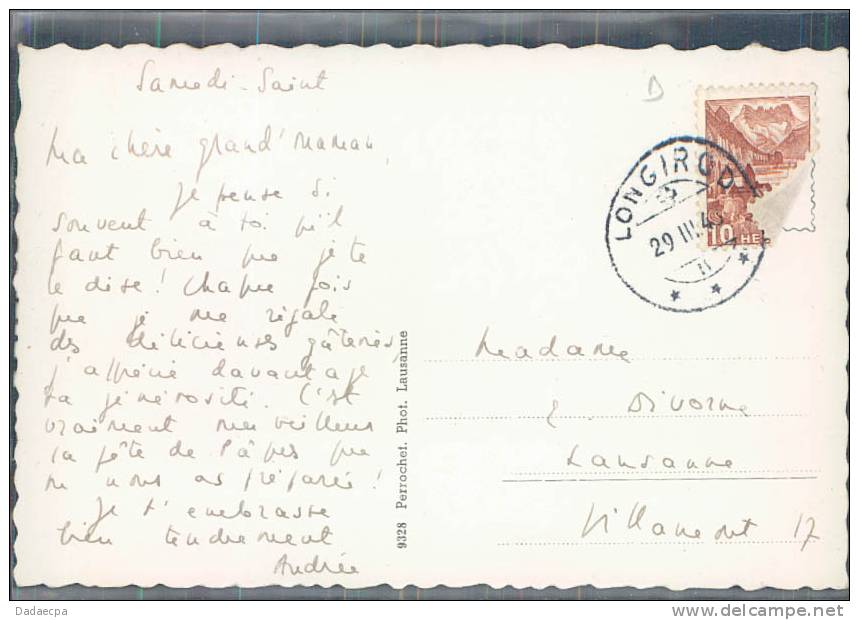 Samedi-Saint
Ma chère grand'Maman,
Je pense si
souvent à toi qu'il
faut bien que je te
le dise! Chaque fois
que je me régale
des délicieuses gâteries,
j'apprécie davantage
ta générosité. C'est
vraiment merveilleux
la fête de Pâques que
tu nous as préparée!
Je t'embrasse
bien tendrement
Andrée
9328 Perrochet. Phot. Lausanne
D
LONGIROD
29 III.48
10 HE
Madame
Divorne
Lausanne
Villamont 17
Dadaecpa
delcampe.net